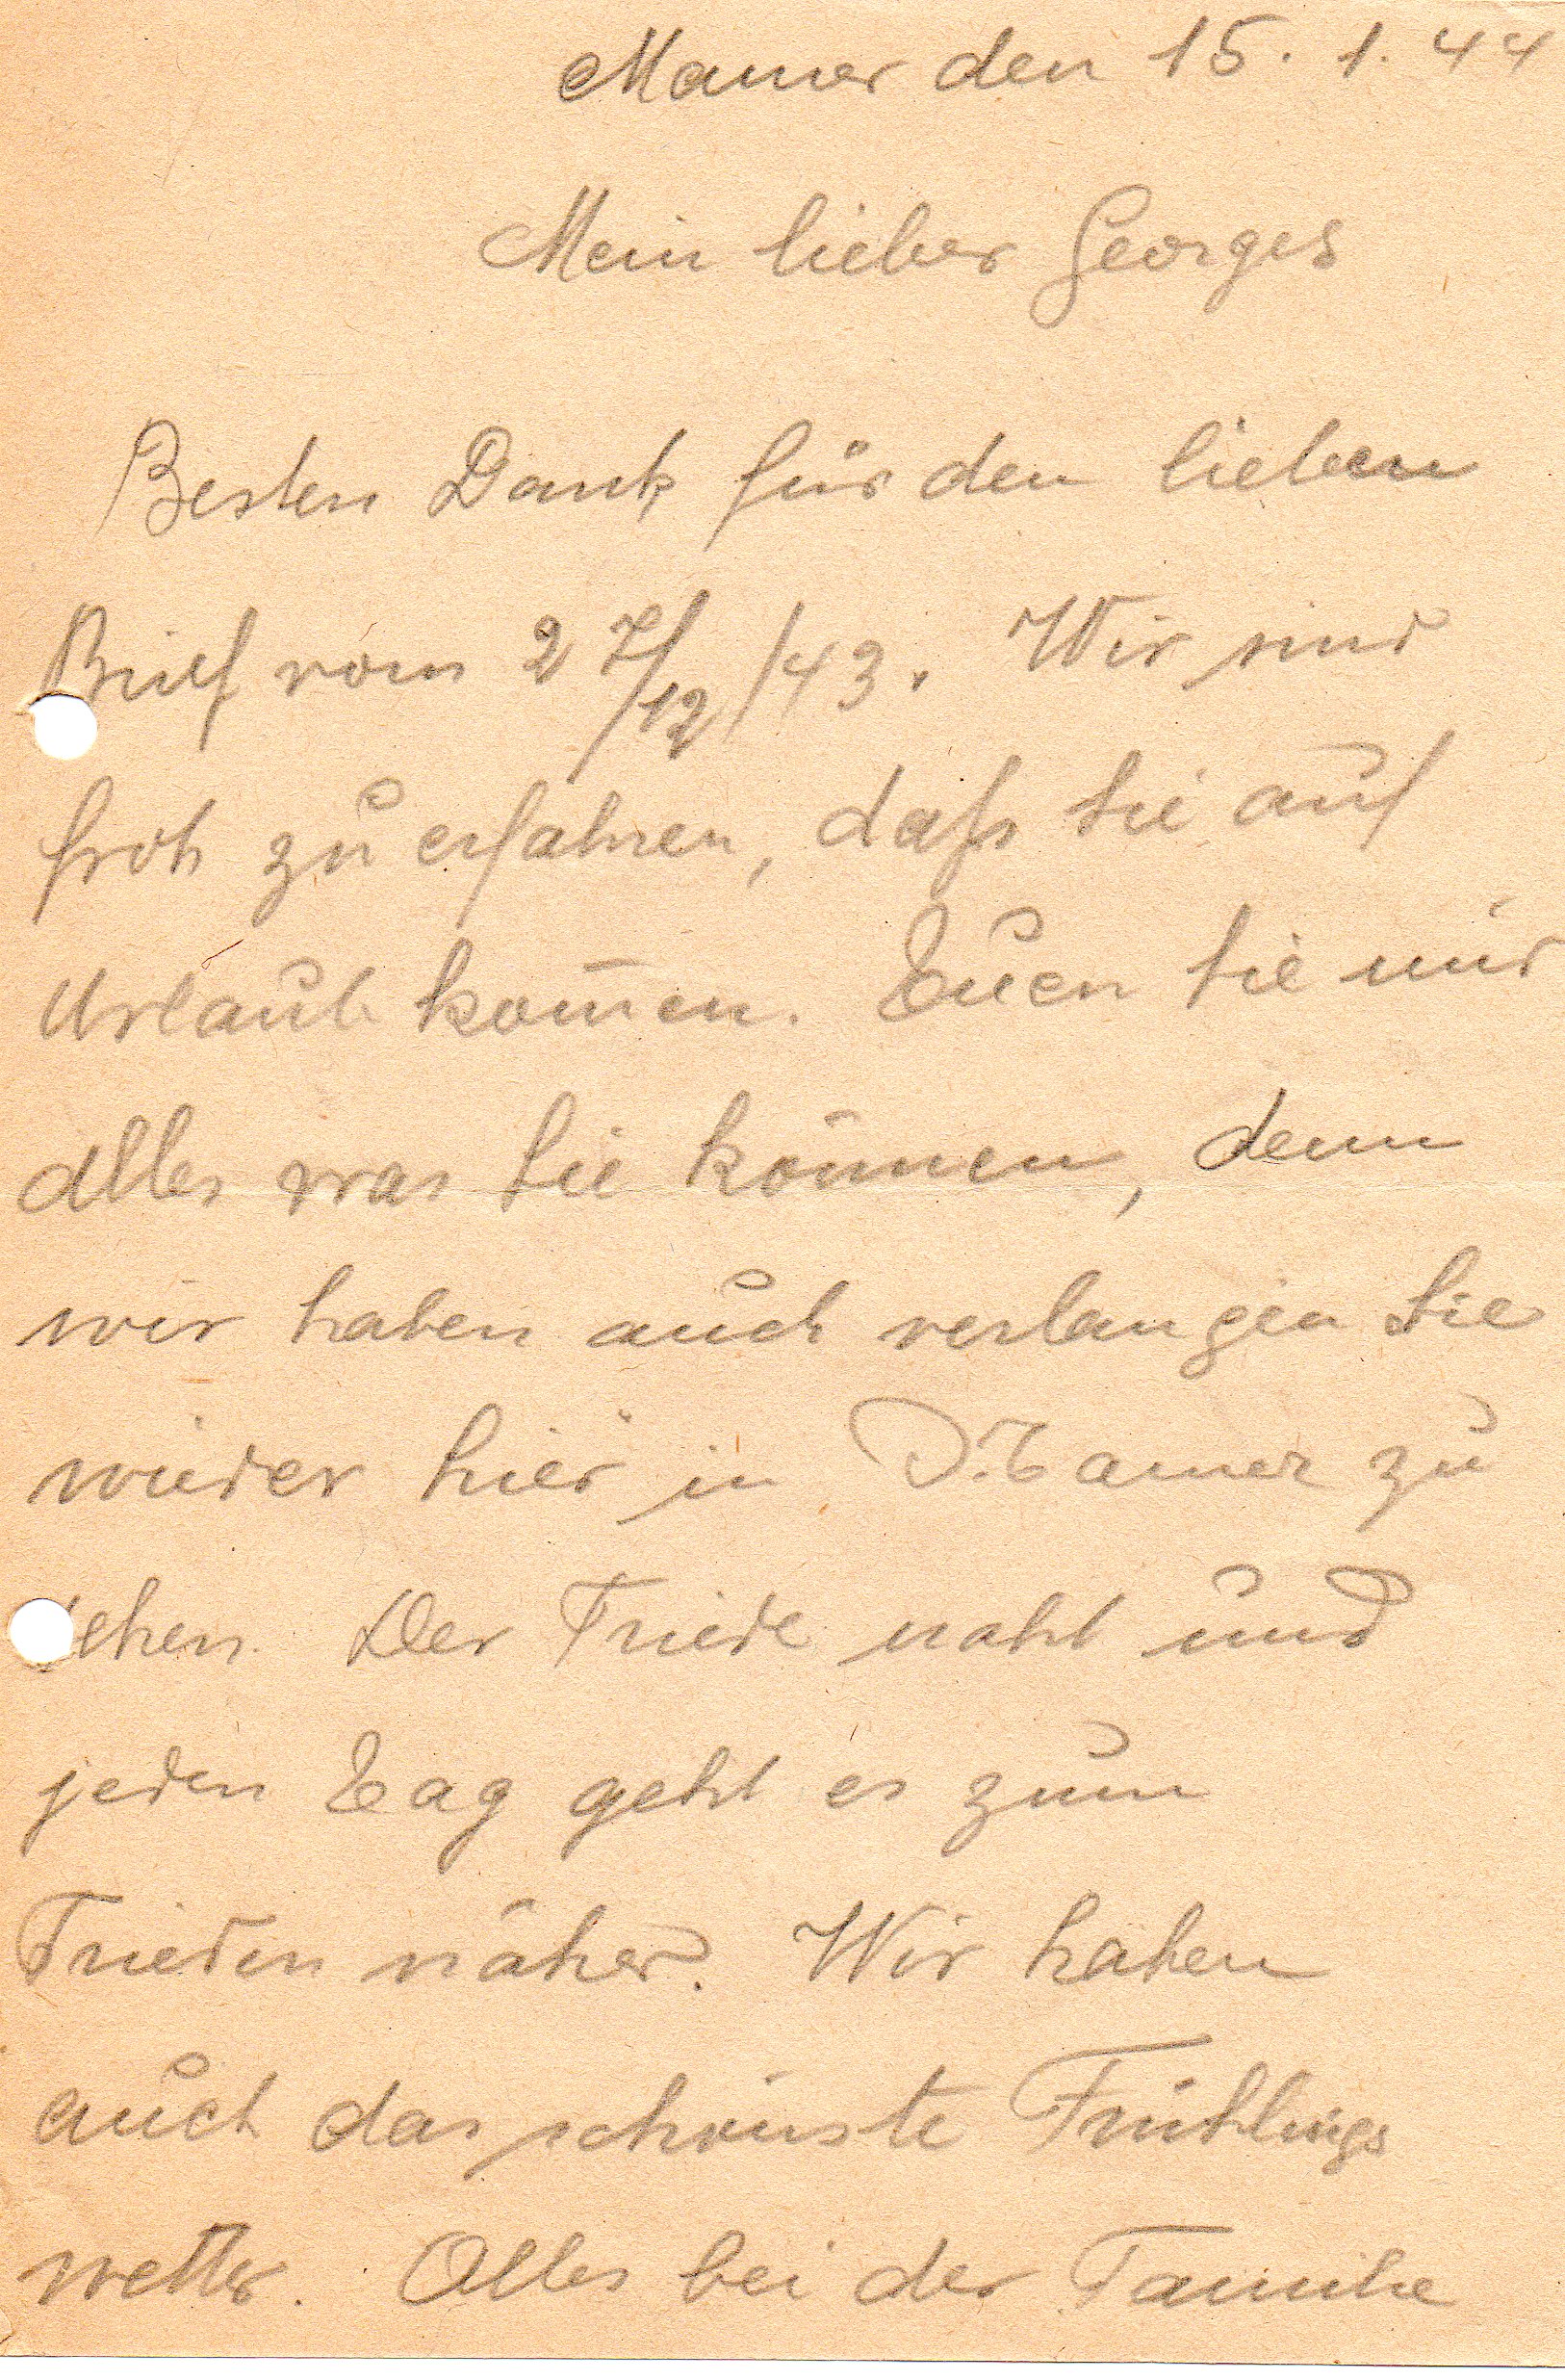 Mamer den 15. 1. 44
Mein lieber Georges
Besten Dank für den lieben
Brief vom 27/12/43. Wir sind
froh zu erfahren, daß Sie auf
Urlaub kom̄en. Tuen Sie nur
alles was Sie können, denn
wir haben auch verlangen Sie
wieder hier in Mamer zu
sehen. Der Friede naht und
jeden Tag geht es zum
Frieden näher. Wir haben
auch das schönste Frühlings
wetter. Alles bei der Familie